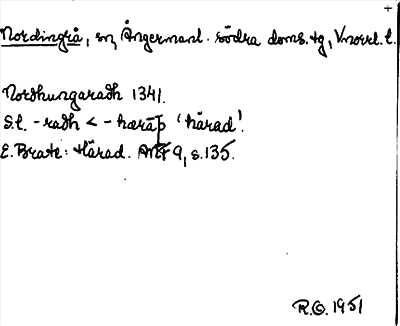 +
Nordingrå, sn, Ångermanl. södra doms. tg, Vnorrl. l.
Nordhungaradh 1341.
S.l. -radh < -hæraþ 'härad'.
E. Brate: Härad. ANF 9, s. 135.
R.O. 1951